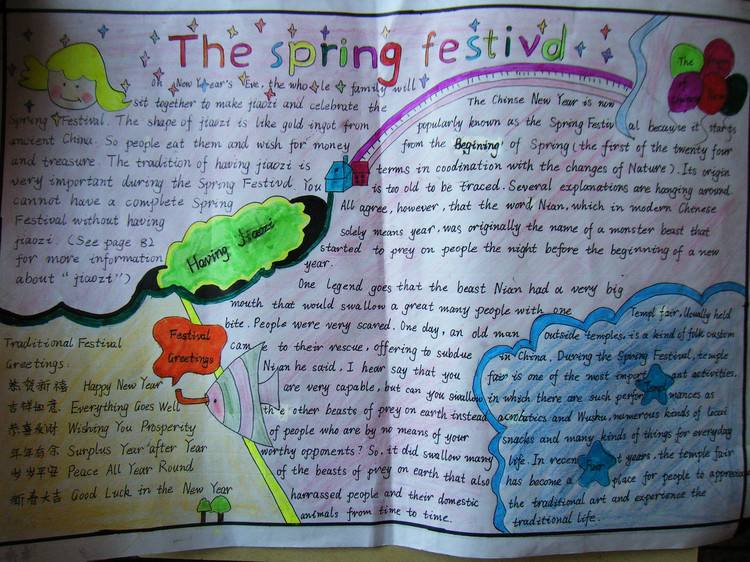 The spring festivd
on New Year's Eve, the whole family will
sit together to make jiaozi and celebrate the
Spring Festival. The shape of jiaozi is like gold ingot from
ancient China. So people eat them and wish for money
and treasure. The tradition of having jiaozi is
very important during the Spring Festivd. You
cannot have a complete Spring
Festival without having
jiaozi. (See page 82
for more information
about "jiaozi")
Having Jiaozi
The
The Chinse New Year is now
popularly known as the Spring Festival because it starts
from the Begining of Spring (the first of the twenty four
terms in coodination with the changes of Nature). Its origin
is too old to be traced. Several explanations are hanging around.
All agree, however, that the word Nian, which in modern Chenese
solely means year, was originally the name of a monster beast that
started to prey on people the night before the beginning of a new
year.
One legend goes that the beast Nian had a very big
mouth that would swallow a great many people with one
bite. People were very scared. One day, an old man
came to their rescue, offering to subdue
Nian he said, I hear say that you
are very capable, but can you swallow
the other beasts of prey on earth instead
of people who are by no means of your
worthy opponents? So, it did swallow many
of the beasts of prey on earth that also
harrassed people and their domestic
animals from time to time.
Festival
Greetings
Traditional Festival
Greetings:
恭贺新禧 Happy New Year
吉祥如意. Everything Goes Well
恭喜发财 Wishing You Prosperity
年年有余 Surplus Year after Year
岁岁平安 Peace All Year Round
新春大吉 Good Luck in the New Year
Templ fair, Usually held
outside temples, is a kind of folk custom
in China. During the Spring Festival, temple
fair is one of the most important activities.
in which there are such performances as
acrobatics and Wushu, numerous kinds of local
snacks and many kinds of things for everyday
life. In recent years, the temple fair
has become a place for people to appreciate
the traditional art and experience the
traditional life.
Templ
Fair